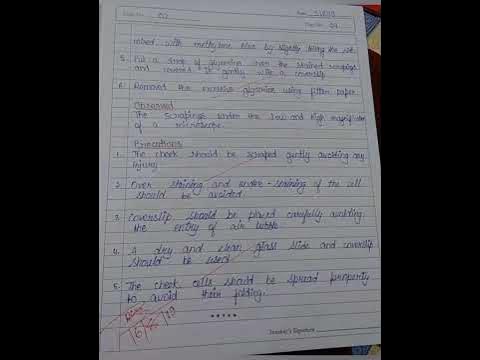 mixed with methylene blue by slightly tilting the slide.
5. Put a drop of glycerine over the stained scrapings
and covered it gently with a coverslip
6. Removed the excessive glycerine using filter paper.
Observed
The scrapings under the low and high magnification
of a microscope.
Precautions
1. The cheek should be scraped gently avoiding any
injury.
2. Over staining and under-staining of the cell
should be avoided.
3. Coverslip should be placed carefully avoiding
the entry of air bubble.
4. A dry and clean glass slide and coverslip
should be used
5. The cheek cells should be spread properly
to avoid their folding.
Teacher's Signature